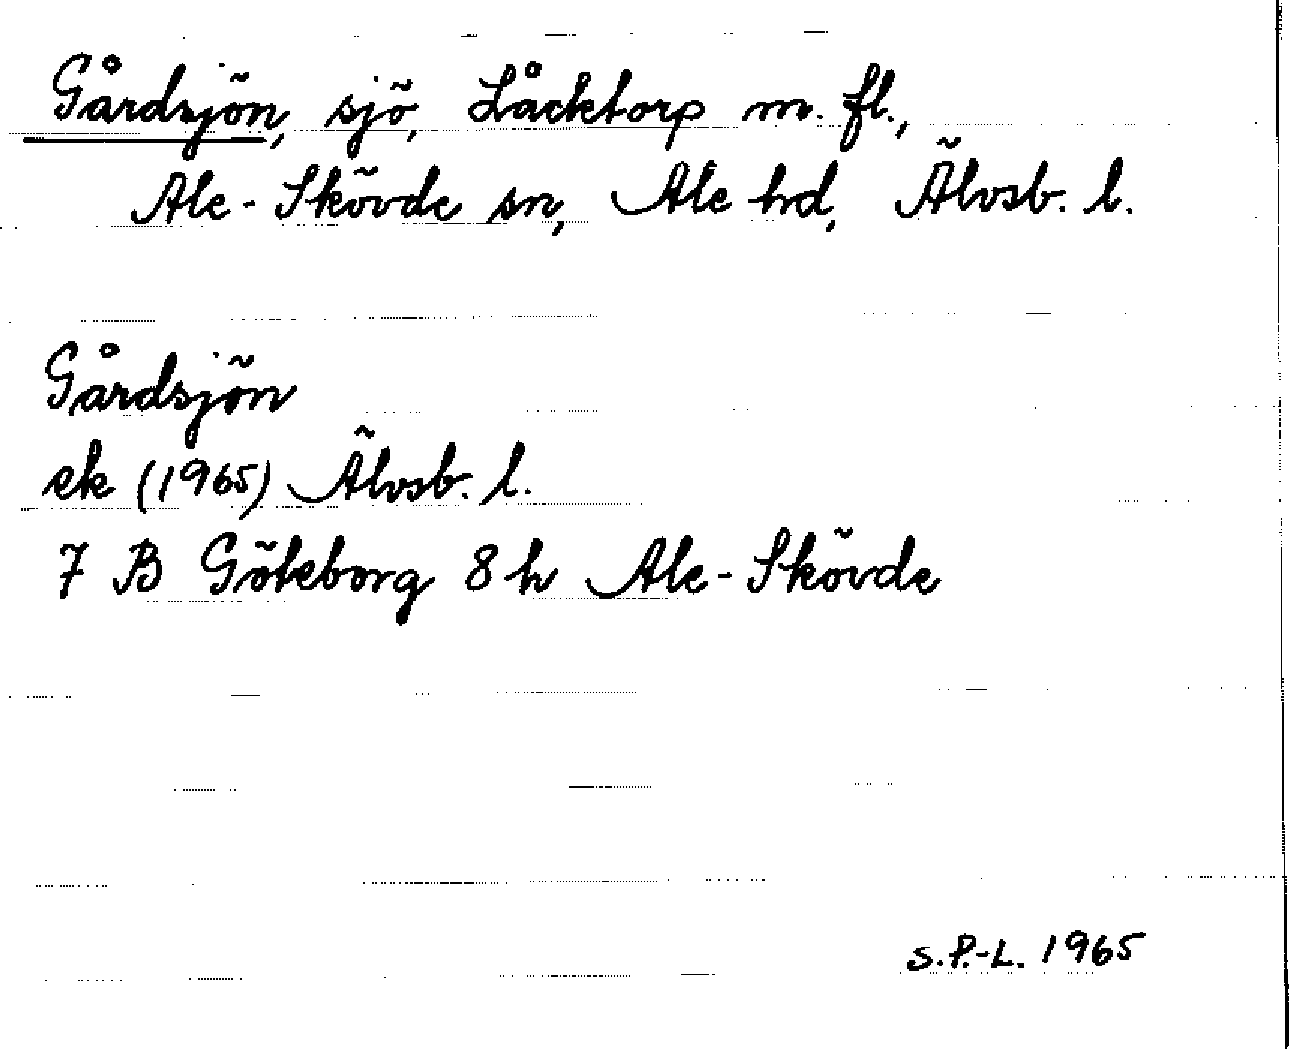 Gårdsjön, sjö, Låcktorp m. fl.,
Ale-Skövde sn, Ale hrd, Älvsb. l.
Gårdsjön
ek (1965) Älvsb. l.
7 B Göteborg 8 h Ale-Skövde
S.P.-L. 1965